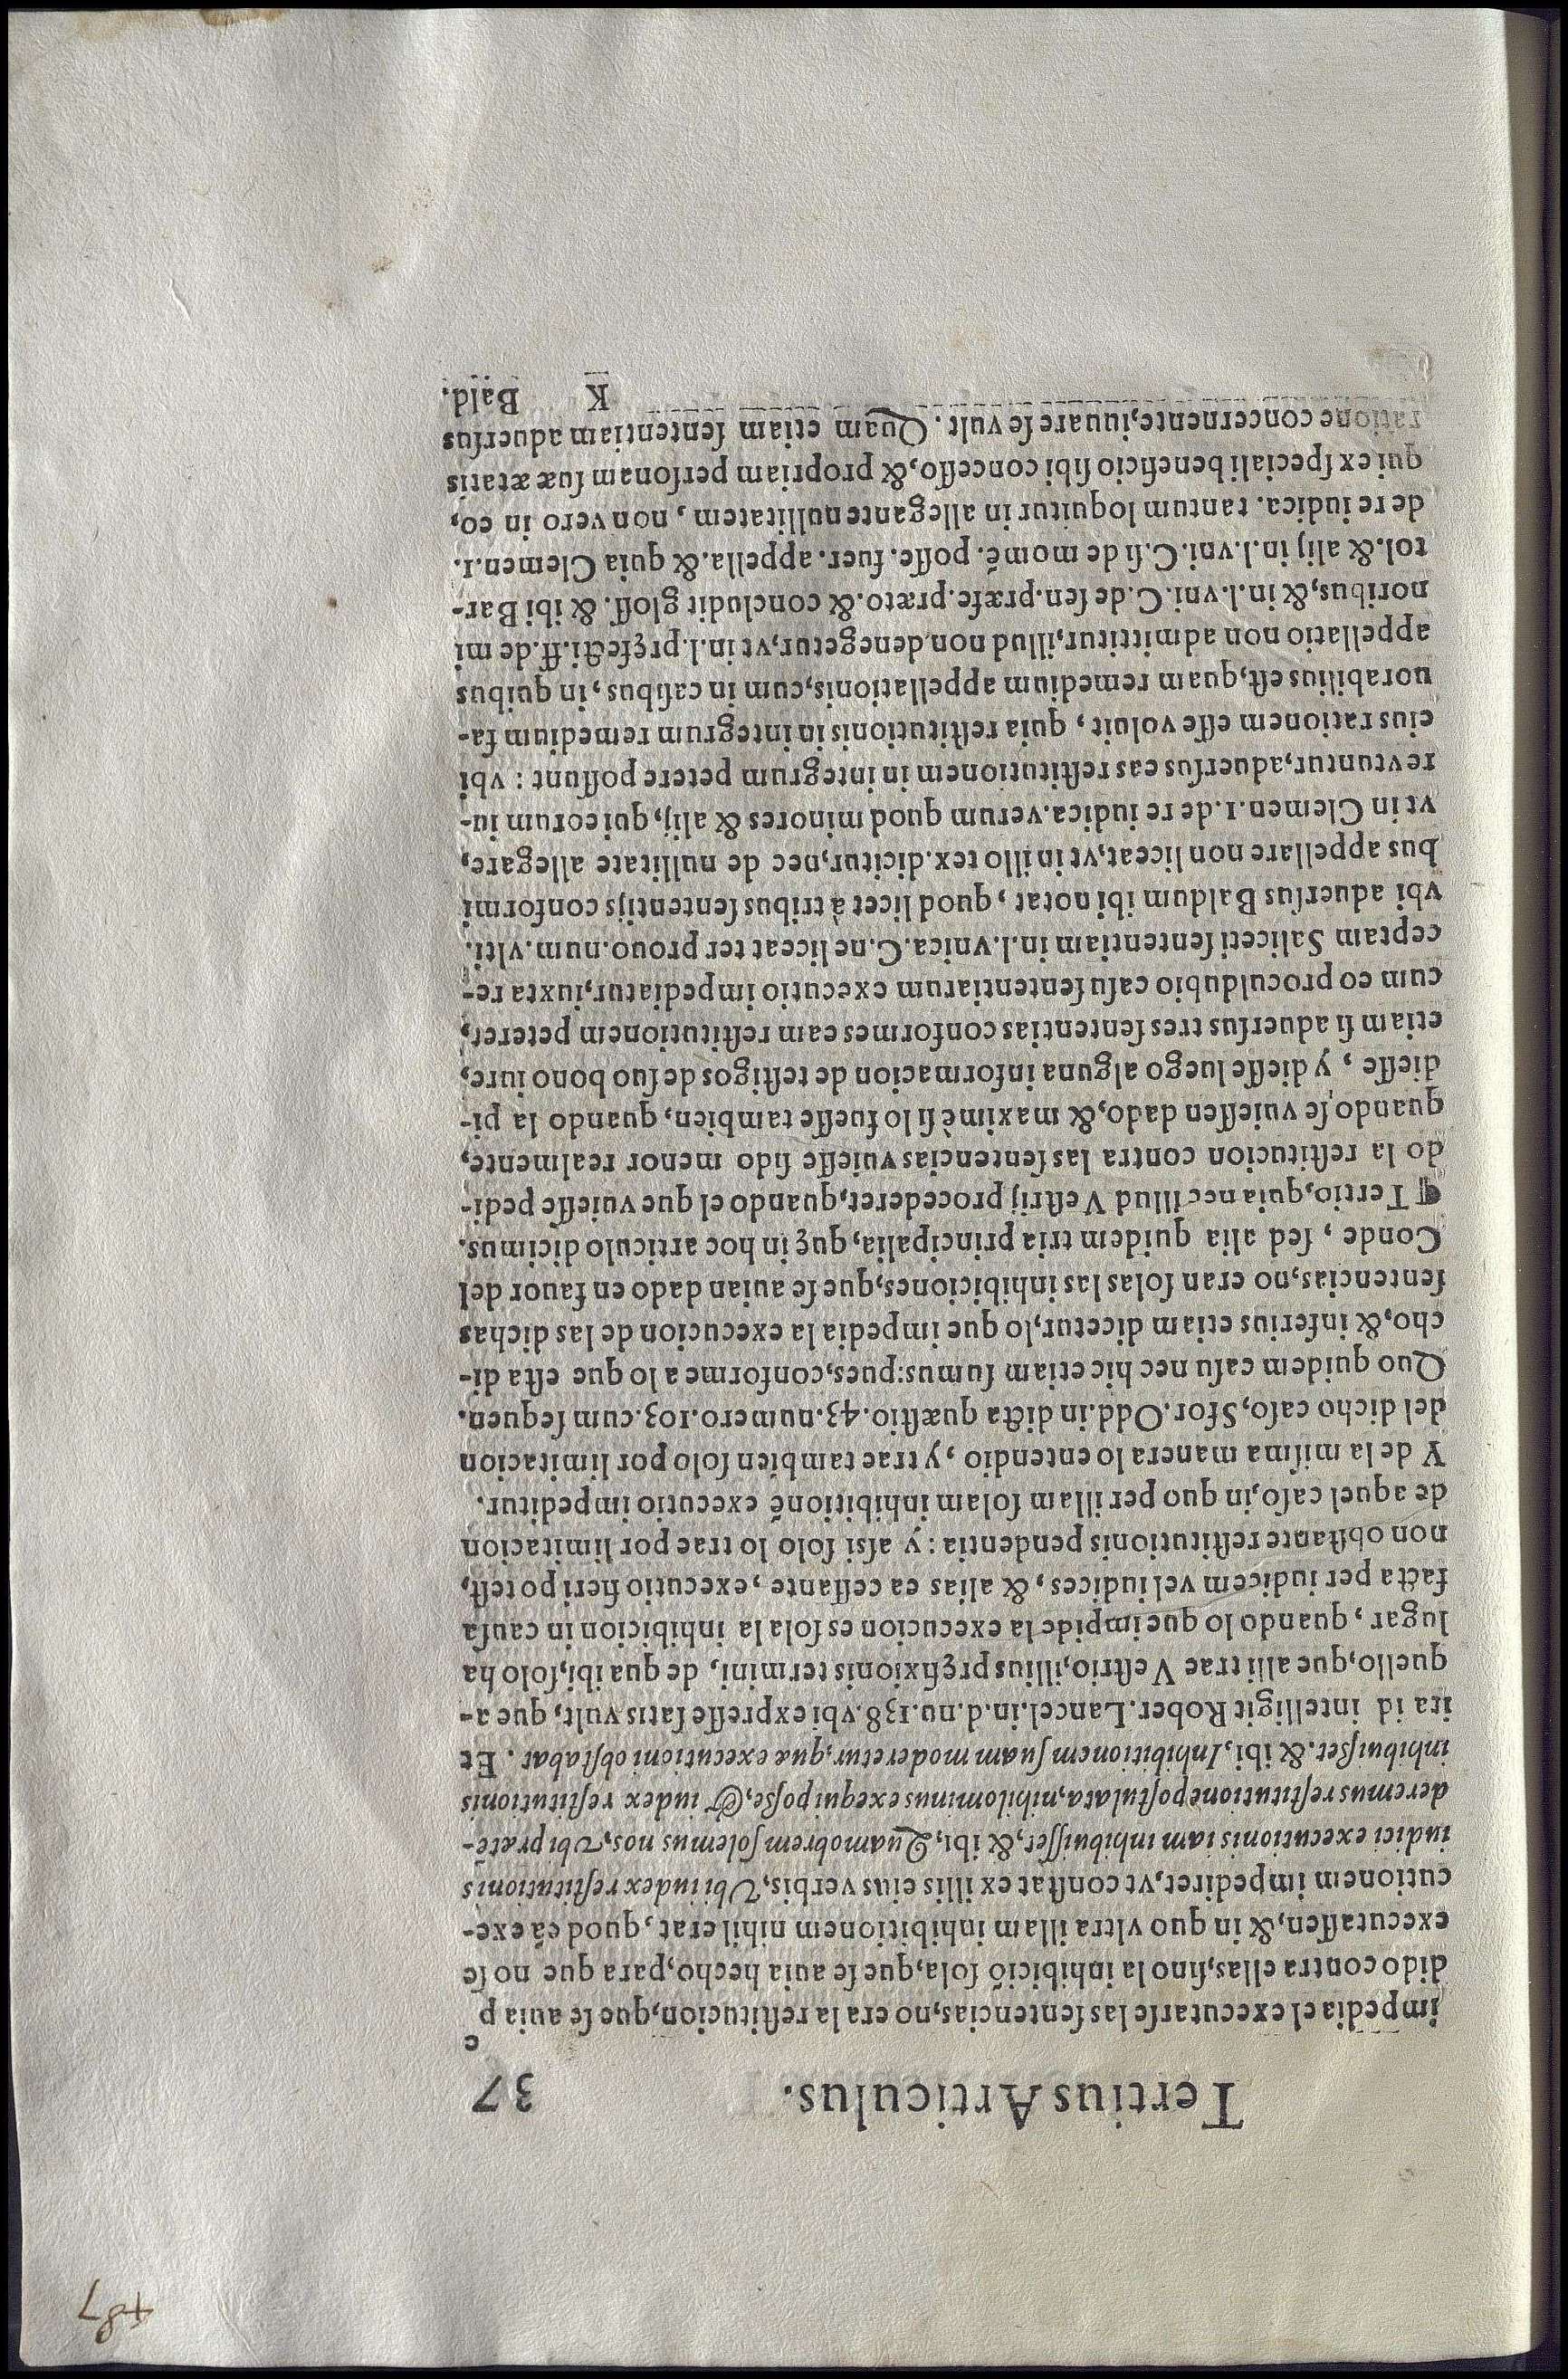 487
Tertius Articulus. 37
impedia el executarse las sentencias, no era la restitucion, que se auia pe
dido contra ellas, sino la inhibiciõ sola, que se auia hecho, para que no se
executassen, & in quo vltra illam inhibitionem nihil erat, quod eã exe-
cutionem impediret, vt constat ex illis eius verbis, Vbi iudex restitutionis
iudici executionis iam inhibuisset, & ibi, Quamobrem solemus nos, vbi prætẽ-
deremus restitutionẽ postulata, nihilominus exequi posse, & iudex restitutionis
inhibuisset. & ibi, Inhibitionem suam moderetur, quæ executioni obstabat. Et
ita id intelligit Rober. Lancel. in. d. nu. 138. vbi expresse satis vult, que a-
quello, que alli trae Vestrio, illius pręfixionis termini, de qua ibi, solo ha
lugar, quando lo que impide la execucion es sola la inhibicion in causa
facta per iudicem vel iudices, & alias ea cessante, executio fieri potest,
non obstante restitutionis pendentia: y assi solo lo trae por limitacion
de aquel caso, in quo per illam solam inhibitionẽ executio impeditur.
Y de la misma manera lo entendio, y trae tambien solo por limitacion
del dicho caso, Sfor. Odd. in dicta quæstio. 43. numero. 103. cum sequen.
Quo quidem casu nec hic etiam sumus: pues, conforme a lo que esta di-
cho, & inferius etiam dicetur, lo que impedia la execucion de las dichas
sentencias, no eran solas las inhibiciones, que se auian dado en fauor del
Conde, sed alia quidem tria principalia, quę in hoc articulo dicimus.
¶ Tertio, quia nec illud Vestrij procederet, quando el que vuiesse pedi-
do la restitucion contra las sentencias vuiesse sido menor realmente,
quando se vuiessen dado, & maximè si lo fuesse tambien, quando la pi-
diesse, y diesse luego alguna informacion de testigos de suo bono iure,
etiam si aduersus tres sententias conformes eam restitutionem peteret,
cum eo proculdubio casu sententiarum executio impediatur, iuxta re-
ceptam Saliceti sententiam in. l. vnica. C. ne liceat ter prouo. num. vlti.
vbi aduersus Baldum ibi notat, quod licet à tribus sententijs conformi
bus appellare non liceat, vt in illo tex. dicitur, nec de nullitate allegare,
vt in Clemen. 1. de re iudica. verum quod minores & alij, qui eorum iu-
re vtuntur, aduersus eas restitutionem in integrum petere possunt: vbi
eius rationem esse voluit, quia restitutionis in integrum remedium fa-
uorabilius est, quam remedium appellationis, cum in casibus, in quibus
appellatio non admittitur, illud non denegetur, vt in. l. pręfecti. ff. de mi
noribus, & in. l. vni. C. de sen. præfe. præto. & concludit gloss. & ibi Bar-
tol. & alij in. l. vni. C. si de momẽ. posse. fuer. appella. & quia Clemen. 1.
de re iudica. tantum loquitur in allegante nullitatem, non vero in eo,
qui ex speciali beneficio sibi concesso, & propriam personam suæ ætatis
ratione concernente, iuuare se vult. Quam etiam sententiam aduersus
K Bald.